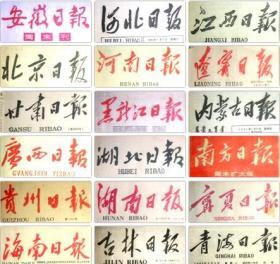 安徽日报
周末刊
河北日報
HEBEI RIBAO
江西日報
JIANGXI RIBAO
北京日报
河南日報
HENAN RIBAO
遼寧日報
LIAONING RIBAO
甘肃日報
GANSU RIBAO
黑龙江日報
内蒙古日报
廣西日報
GVANGJSIH YIZBAU
湖北日報
HUBEI RIBAO
南方日報
周末扩大版
貴州日報
GUIZHOU RIBAO
湖南日報
HUNAN RIBAO
寧夏日報
NINGXIA RIBAO
海南日报
HAINAN RIBAO
吉林日报
JILIN RIBAO
青海日報
QINGHAI RIBAO